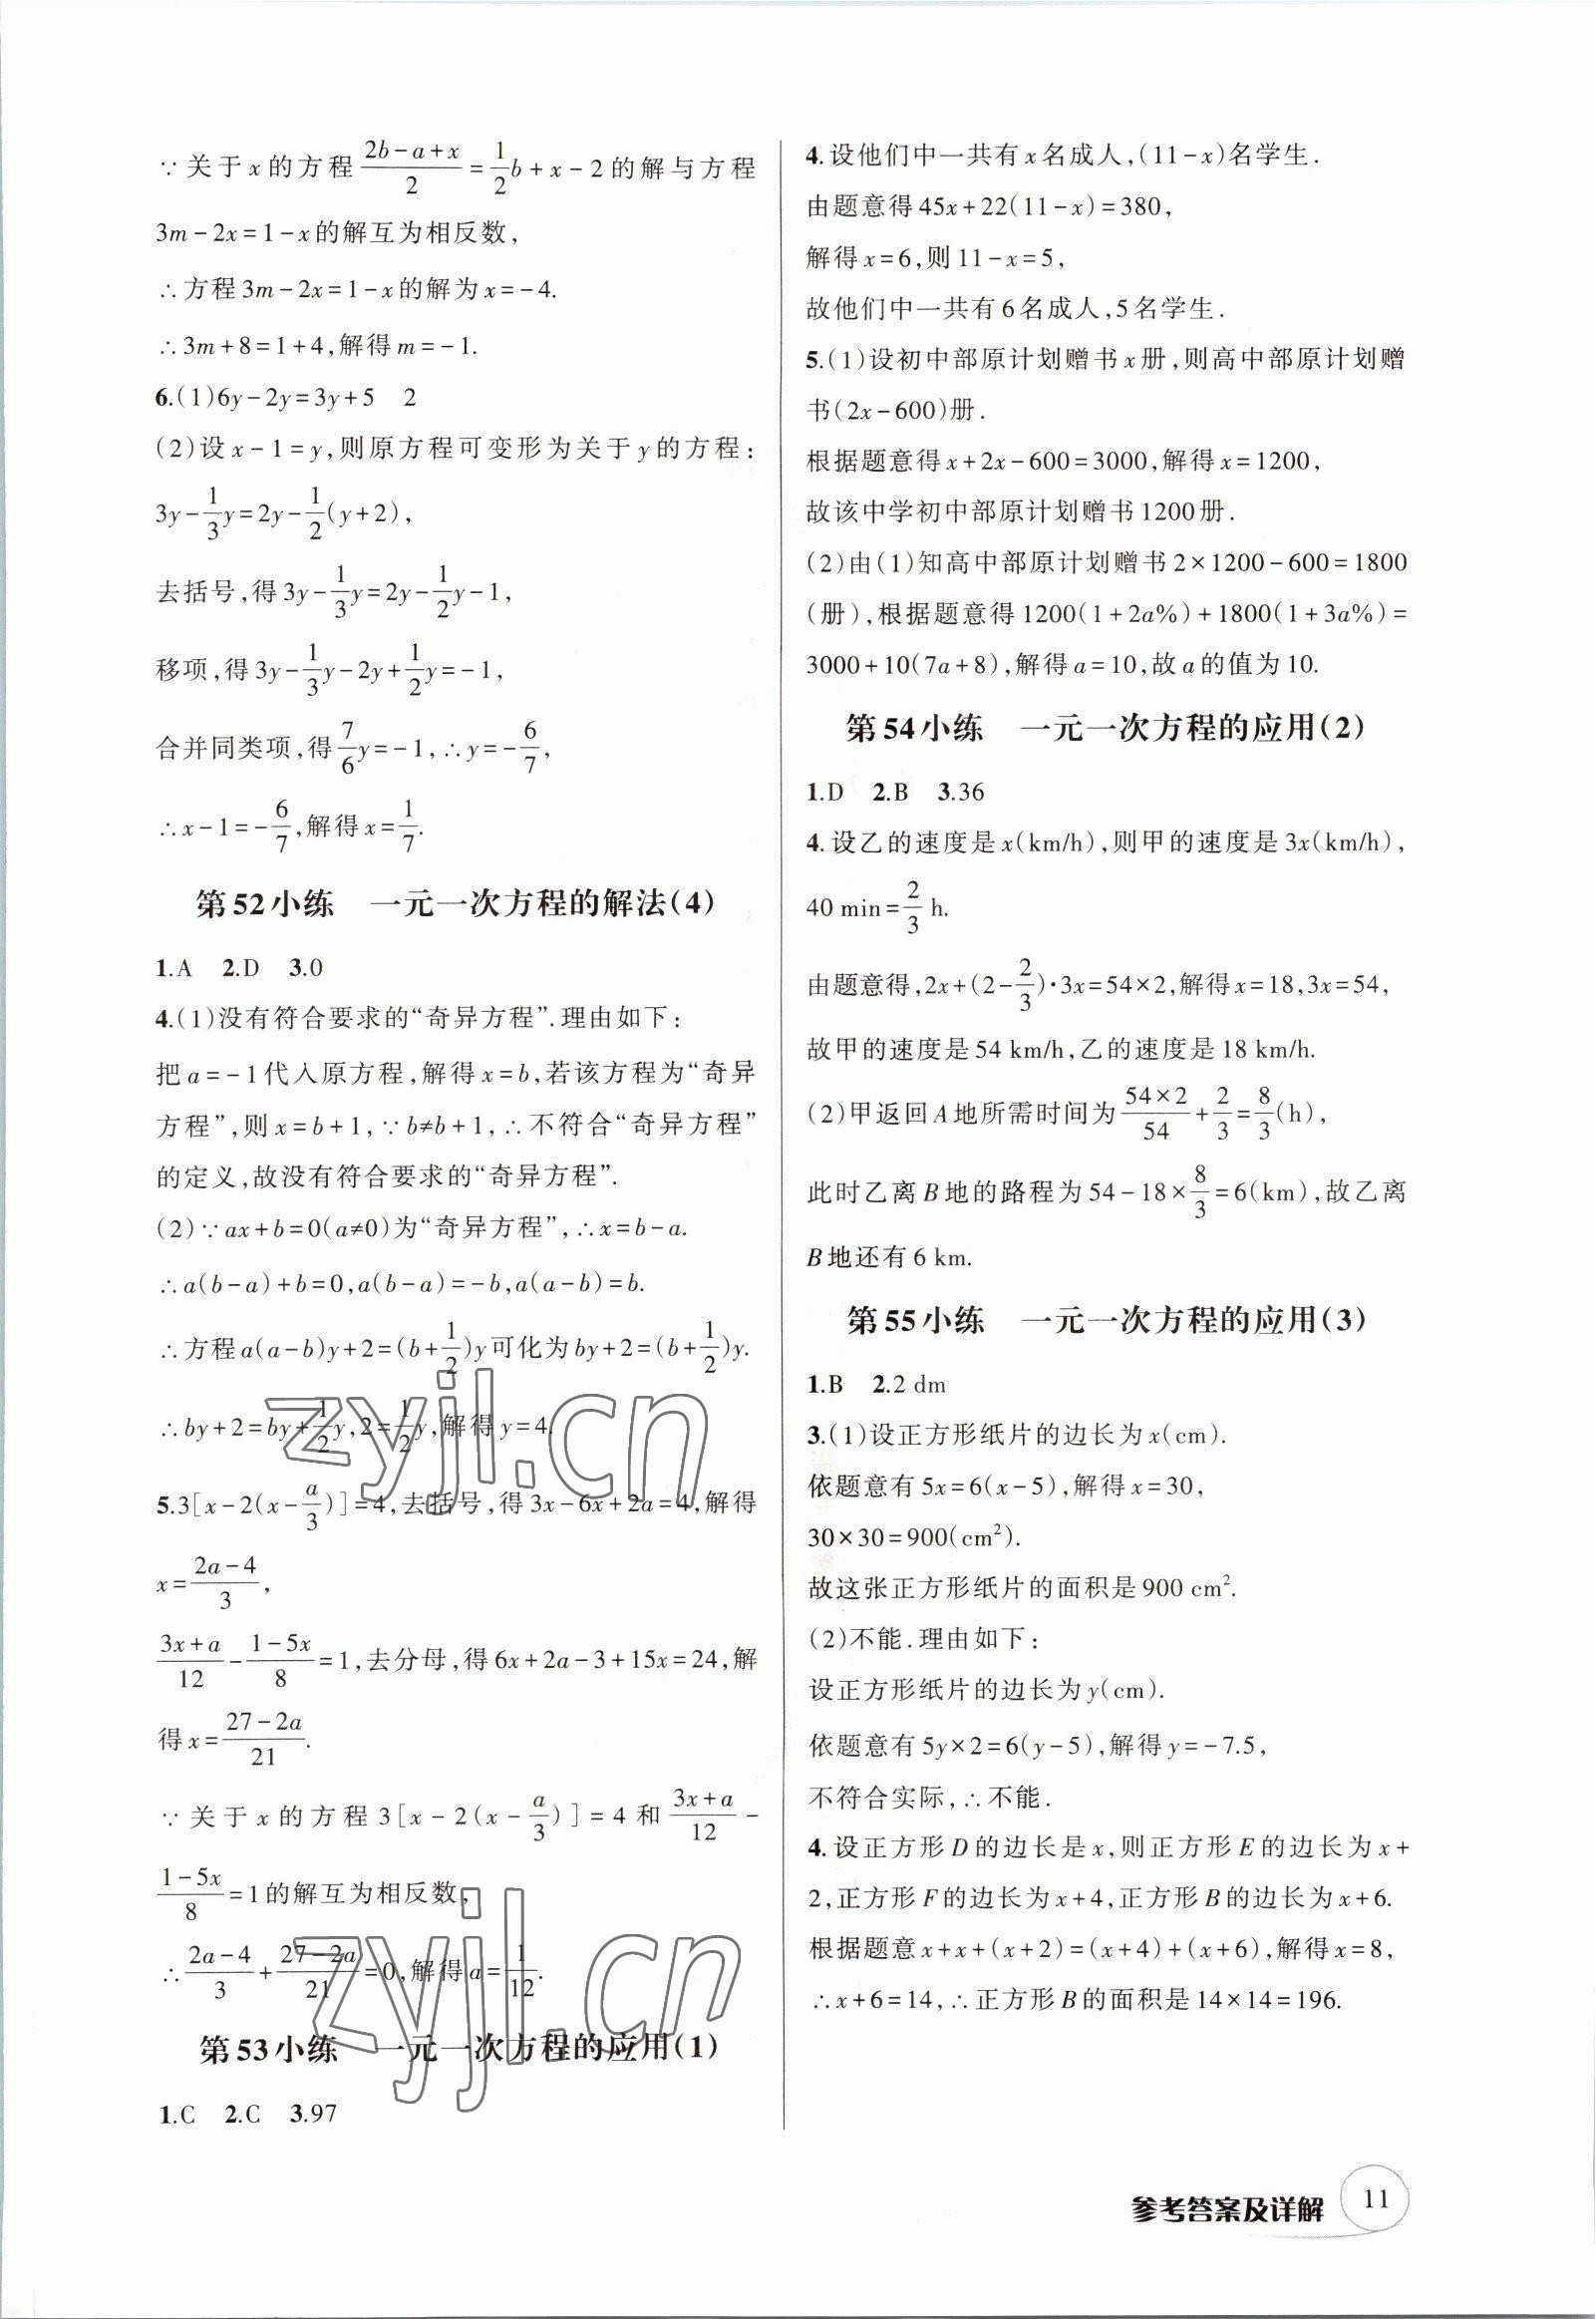 ∵关于x的方程\frac{2b-a+x}{2}=\frac{1}{2}b+x-2的解与方程
3m-2x=1-x的解互为相反数,
∴方程3m-2x=1-x的解为x=-4.
∴3m+8=1+4,解得m=-1.
6.(1)6y-2y=3y+5 2
(2)设x-1=y,则原方程可变形为关于y的方程:
3y-\frac{1}{3}y=2y-\frac{1}{2}(y+2),
去括号,得3y-\frac{1}{3}y=2y-\frac{1}{2}y-1,
移项,得3y-\frac{1}{3}y-2y+\frac{1}{2}y=-1,
合并同类项,得\frac{7}{6}y=-1,∴y=-\frac{6}{7},
∴x-1=-\frac{6}{7},解得x=\frac{1}{7}.
第52小练 一元一次方程的解法(4)
1.A 2.D 3.0
4.(1)没有符合要求的“奇异方程”.理由如下:
把a=-1代入原方程,解得x=b,若该方程为“奇异
方程”,则x=b+1,∵b≠b+1,∴不符合“奇异方程”
的定义,故没有符合要求的“奇异方程”.
(2)∵ax+b=0(a≠0)为“奇异方程”,∴x=b-a.
∴a(b-a)+b=0,a(b-a)=-b,a(a-b)=b.
∴方程a(a-b)y+2=(b+\frac{1}{2})y可化为by+2=(b+\frac{1}{2})y.
∴by+2=by+\frac{1}{2}y,2=\frac{1}{2}y,解得y=4.
5.3[x-2(x-\frac{a}{3})]=4,去括号,得3x-6x+2a=4,解得
x=\frac{2a-4}{3},
\frac{3x+a}{12}-\frac{1-5x}{8}=1,去分母,得6x+2a-3+15x=24,解
得x=\frac{27-2a}{21}.
∵关于x的方程3[x-2(x-\frac{a}{3})]=4和\frac{3x+a}{12}-
\frac{1-5x}{8}=1的解互为相反数,
∴\frac{2a-4}{3}+\frac{27-2a}{21}=0,解得a=\frac{1}{12}.
第53小练 一元一次方程的应用(1)
1.C 2.C 3.97
4.设他们中一共有x名成人,(11-x)名学生.
由题意得45x+22(11-x)=380,
解得x=6,则11-x=5,
故他们中一共有6名成人,5名学生.
5.(1)设初中部原计划赠书x册,则高中部原计划赠
书(2x-600)册.
根据题意得x+2x-600=3000,解得x=1200,
故该中学初中部原计划赠书1200册.
(2)由(1)知高中部原计划赠书2×1200-600=1800
(册),根据题意得1200(1+2a%)+1800(1+3a%)=
3000+10(7a+8),解得a=10,故a的值为10.
第54小练 一元一次方程的应用(2)
1.D 2.B 3.36
4.设乙的速度是x(km/h),则甲的速度是3x(km/h),
40 min=\frac{2}{3} h.
由题意得,2x+(2-\frac{2}{3})·3x=54×2,解得x=18,3x=54,
故甲的速度是54 km/h,乙的速度是18 km/h.
(2)甲返回A地所需时间为\frac{54×2}{54}+\frac{2}{3}=\frac{8}{3}(h),
此时乙离B地的路程为54-18×\frac{8}{3}=6(km),故乙离
B地还有6 km.
第55小练 一元一次方程的应用(3)
1.B 2.2 dm
3.(1)设正方形纸片的边长为x(cm).
依题意有5x=6(x-5),解得x=30,
30×30=900(cm²).
故这张正方形纸片的面积是900 cm².
(2)不能.理由如下:
设正方形纸片的边长为y(cm).
依题意有5y×2=6(y-5),解得y=-7.5,
不符合实际,∴不能.
4.设正方形D的边长是x,则正方形E的边长为x+
2,正方形F的边长为x+4,正方形B的边长为x+6.
根据题意x+x+(x+2)=(x+4)+(x+6),解得x=8,
∴x+6=14,∴正方形B的面积是14×14=196.
zyjl.cn
zyjl.cn
参考答案及详解 11